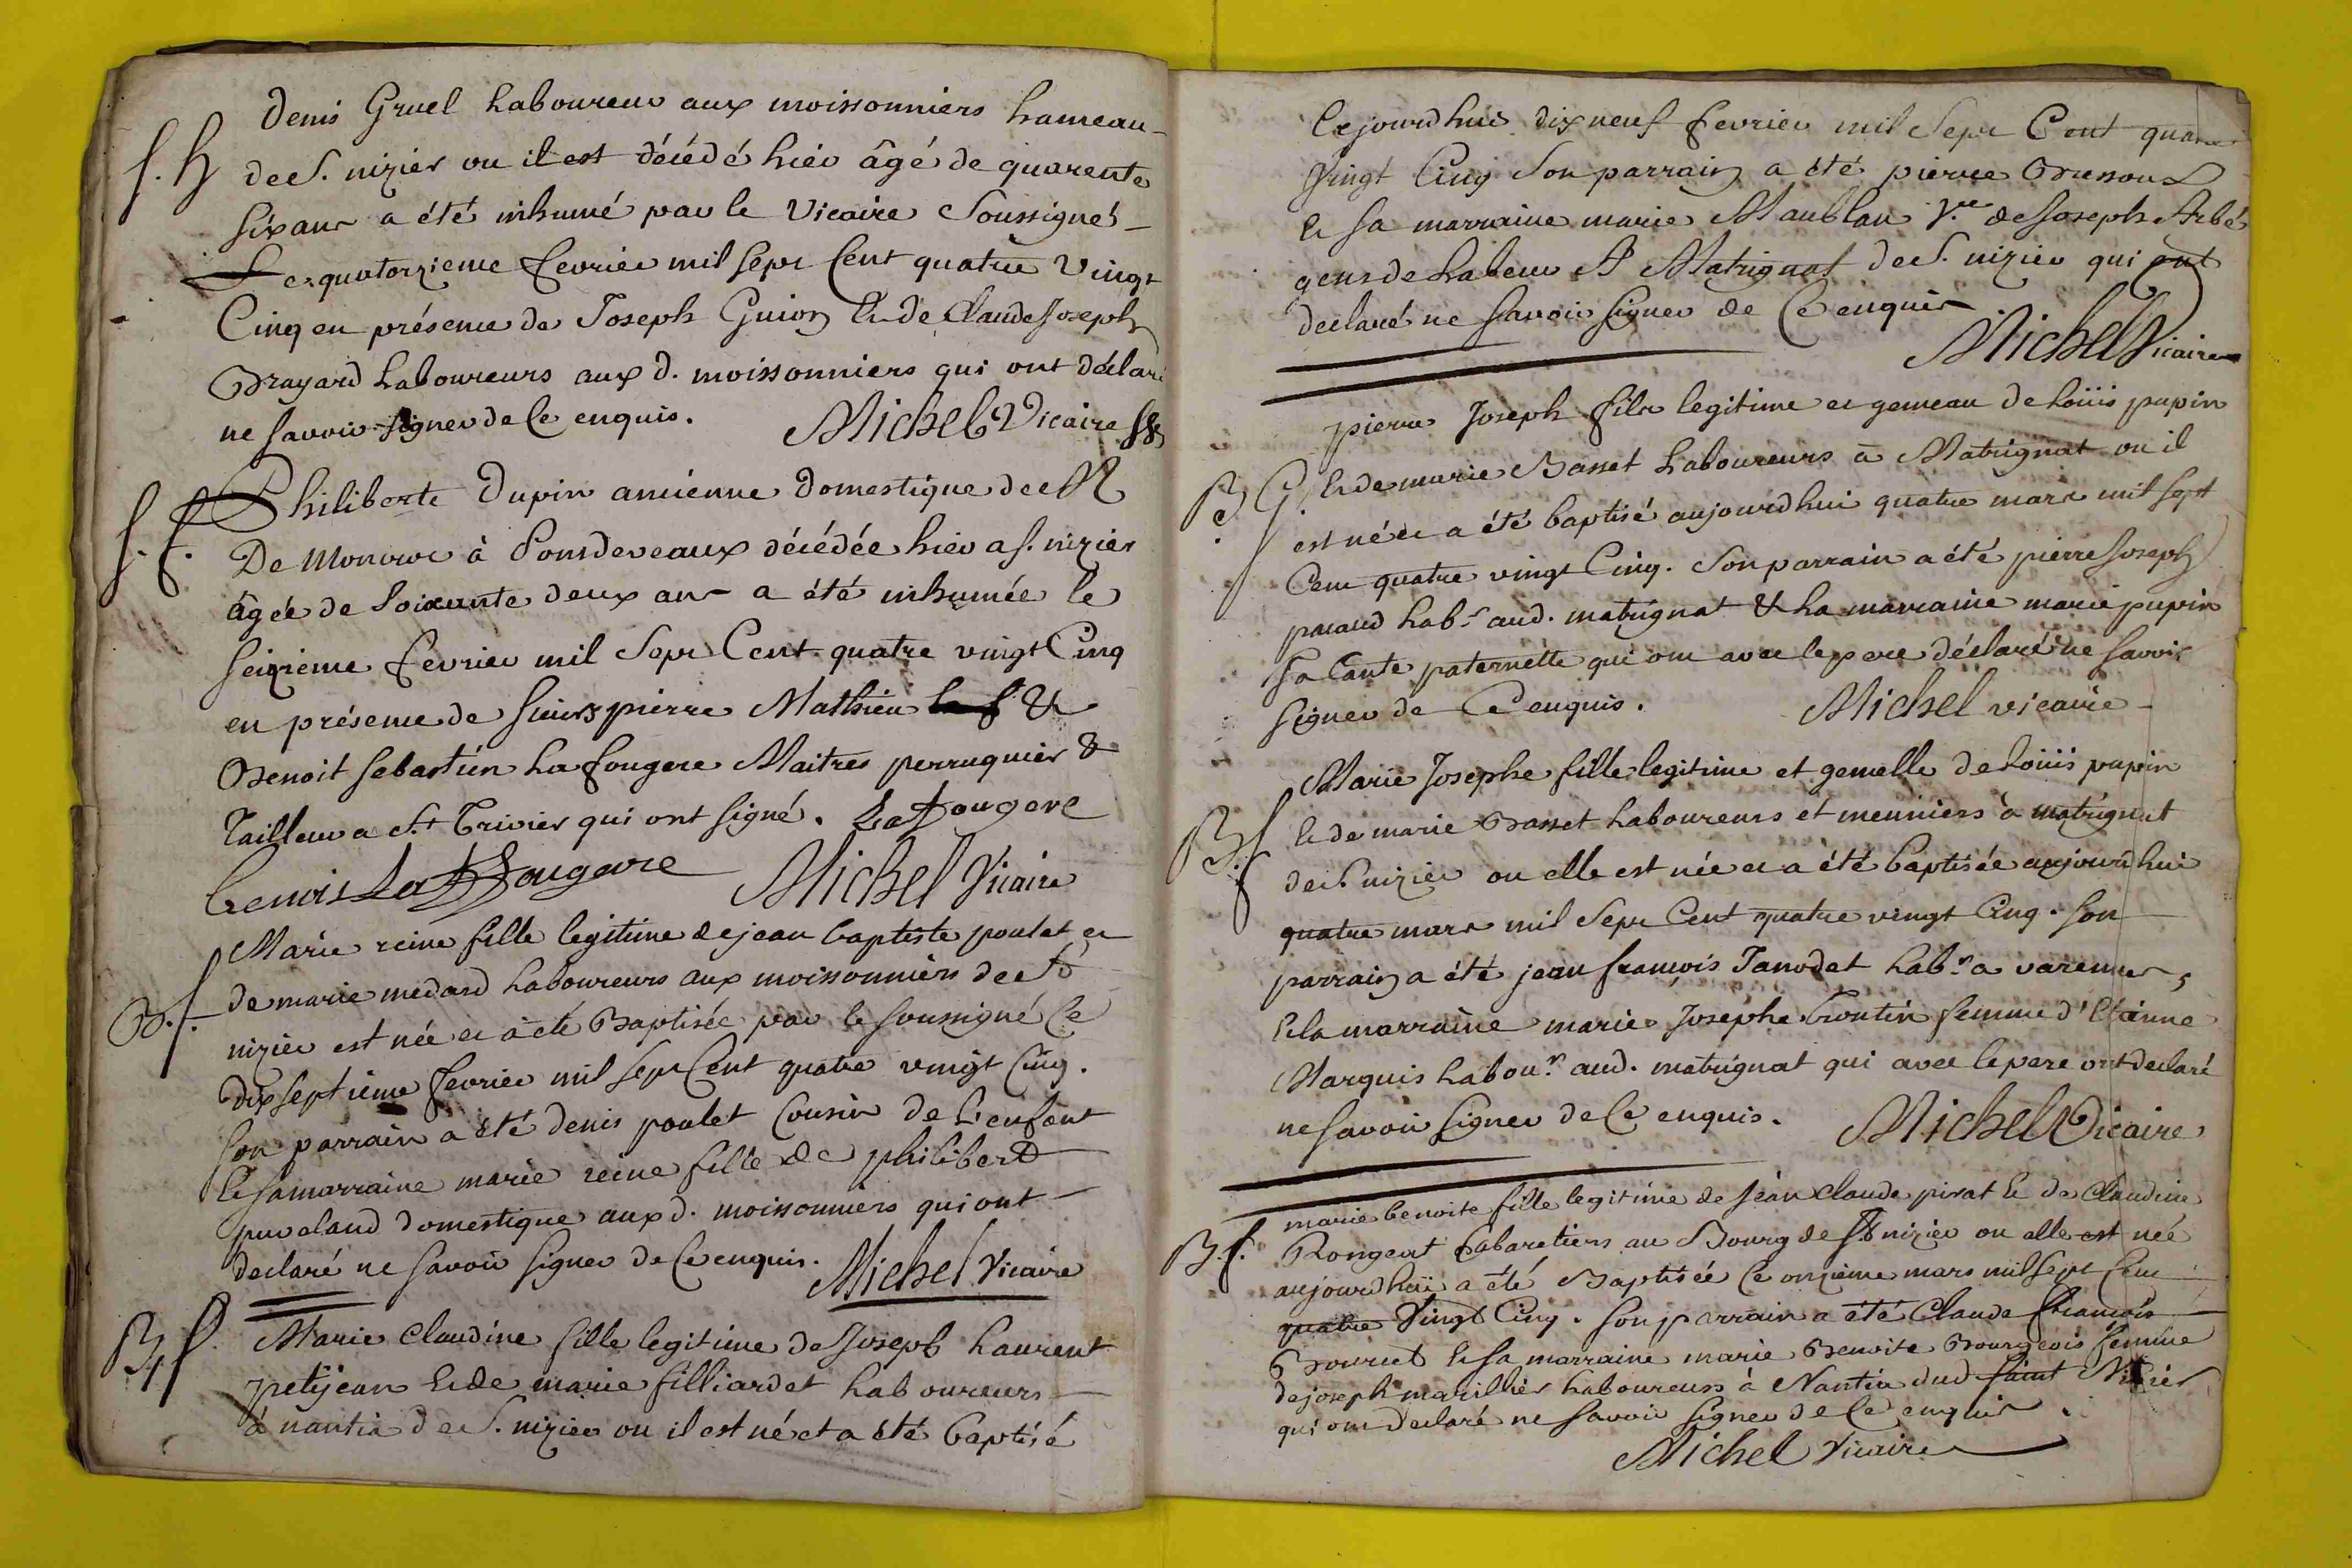 Denis Gruel Laboureur aux moissonniers hameau
S. H
de S. nizier ou il est décédé hier âgé de quarente
six ans a été inhumé par le Vicaire Soussigné
Le quatorzieme fevrier mil sept Cent quatre Vingt
Cinq en présence de Joseph Guion Et de Claude Joseph
Brayard Laboureurs aux d. moissonniers qui ont déclaré
ne savoir signer de Ce enquis. Michel Vicaire
Philiberte Dupin ancienne Domestique de M
S. f.
De Moncroc à Pondeveaux décédée hier a S. nizier
âgée de Soixante deux ans a été inhumée le
seizieme fevrier mil Sept Cent quatre vingt Cinq
en présence de sieurs pierre Mathieu &
Benoit Sebastien La fougere Maitres perruquier &
Tailleur a St Trivier qui ont signé. La fougere
benois La fougere Michel Vicaire
Marie reine fille legitime de jean baptiste poulet et
B. f.
de marie medard Laboureurs aux moissonniers de St
nizier est née et a été Baptisée par le soussigné Ce
dixseptieme fevrier mil sept Cent quatre vingt Cinq.
Son parrain a été denis poulet Cousin de L'enfant
Et sa marraine marie reine fille de philibert
domestique aux d. moissonniers qui ont
declaré ne savoir signer de Ce enquis. Michel Vicaire
B. f.
Marie Claudine fille legitime de Joseph Laurent
petijean Et de marie filliardet Laboureurs
à nantia de S. nizier ou il est né et a été baptisé
Cejourdhui dix neuf fevrier mil Sept Cent quatre
Vingt Cinq Son parrain a été pierre
Et sa marraine marie Maublan Vve de Joseph Arbé
gens de Labeur A Matrignat de S. nizier qui ont
declaré ne savoir signer de Ce enquis
Michel Vicaire
pierre Joseph fils legitime et gemeau de Loüis pupin
B G.
Et de marie Basset Laboureurs à Matrignat ou il
est né et a été baptisé aujourdhui quatre mars mil sept
Cent quatre vingt Cinq. Son parrain a été pierre Joseph
Lab.r aud. matrignat & La marraine marie pupin
sa tante paternelle qui ont avec le pere déclaré ne savoir
signer de Ce enquis. Michel vicaire
Marie Josephe fille legitime et gemelle de Loüis pupin
B. f
Et de marie Basset Laboureurs et meuniers à matrignat
de S. nizier ou elle est née et a été baptisée aujourdhui
quatre mars mil Sept Cent quatre vingt Cinq. Son
parrain a été jean françois Janodet Lab.r a varennes,
Et la marraine marie Josephe Troutin femme d'Etienne
Marquis Labou.r aud. matrignat qui avec le pere ont declaré
ne savoir signer de Ce enquis. Michel Vicaire
marie benoite fille legitime de Jean Claude pirat Et de Claudine
B. f.
Rongeat Cabaretiers au Bourg de St nizier ou elle est née
aujourdhui a été Baptisée Ce onzieme mars mil sept Cent
quatre Vingt Cinq. Son parrain a été Claude francois
Et sa marraine marie Benoite Bourgeois femme
de joseph marillier Laboureurs à Nantia dud saint Nizier
qui ont declaré ne savoir signer de Ce enquis.
Michel Vicaire